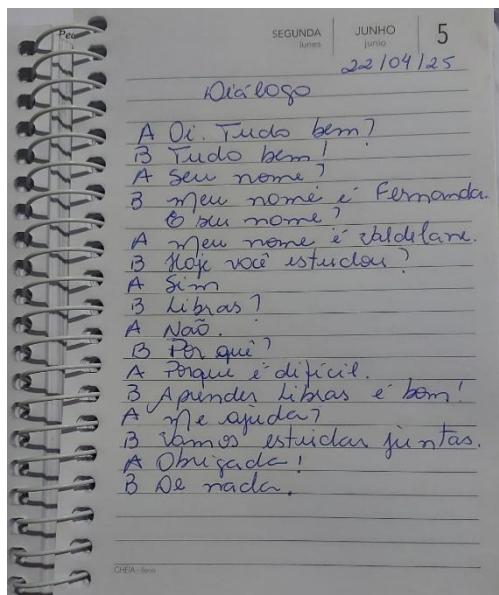 SEGUNDA
lunes
JUNHO
junio
5
22/04/25
Diálogo
A Oi. Tudo bem?
B Tudo bem!
A Seu nome?
B Meu nome é Fernanda.
O seu nome?
A Meu nome é Valdilane.
B Hoje você estudou?
A Sim
B Libras?
A Não.
B Por quê?
A Porque é difícil.
B Aprender Libras é bom!
A Me ajuda?
B Vamos estuidar juntas.
A Obrigada!
B De nada.
CHEIA - llena